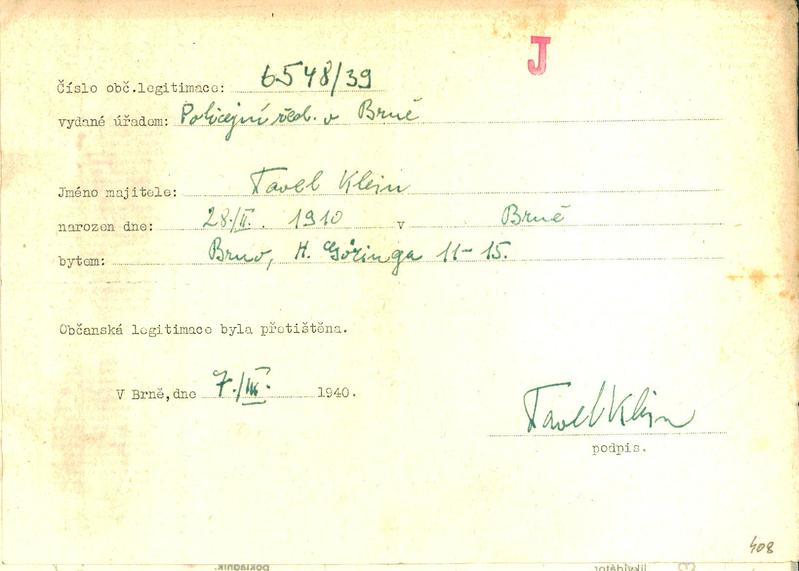 J
Číslo obč.legitimace: 6548/39
vydané úřadem: Policejní řed. v Brně
Jméno majitele: Pavel Klein
narozen dne: 28./II. 1910 v Brně
bytem: Brno, H. Göringa 11-15.
Občanská legitimace byla přetištěna.
V Brně, dne 7./III. 1940.
Pavel Klein
podpis.
408
pokladník.
likvidátor